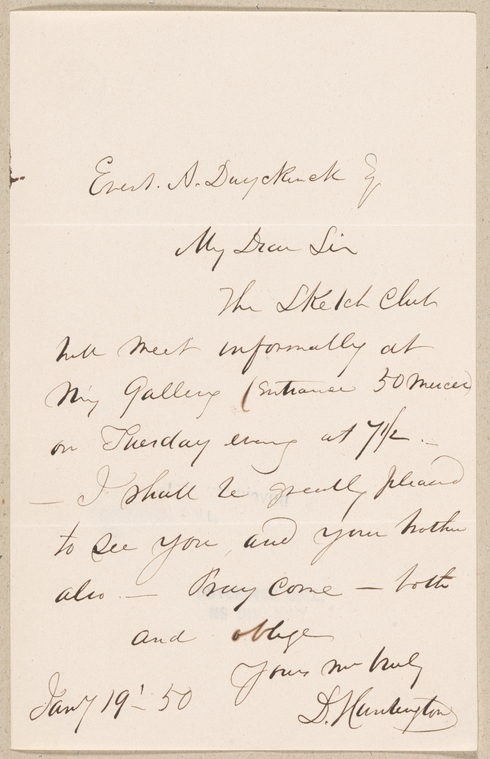 Evert. A. Duyckinck Eq
My Dear Sir
The Sketch Club
will meet informally at
my Gallery (Entrance 50 Mercer)
on Tuesday eveng at 7½ –
– I shall be greatly pleased
to see you and your brother
also – Pray come – both
and oblige
Yours mo truly
D. Huntington
Jany 19' – 50